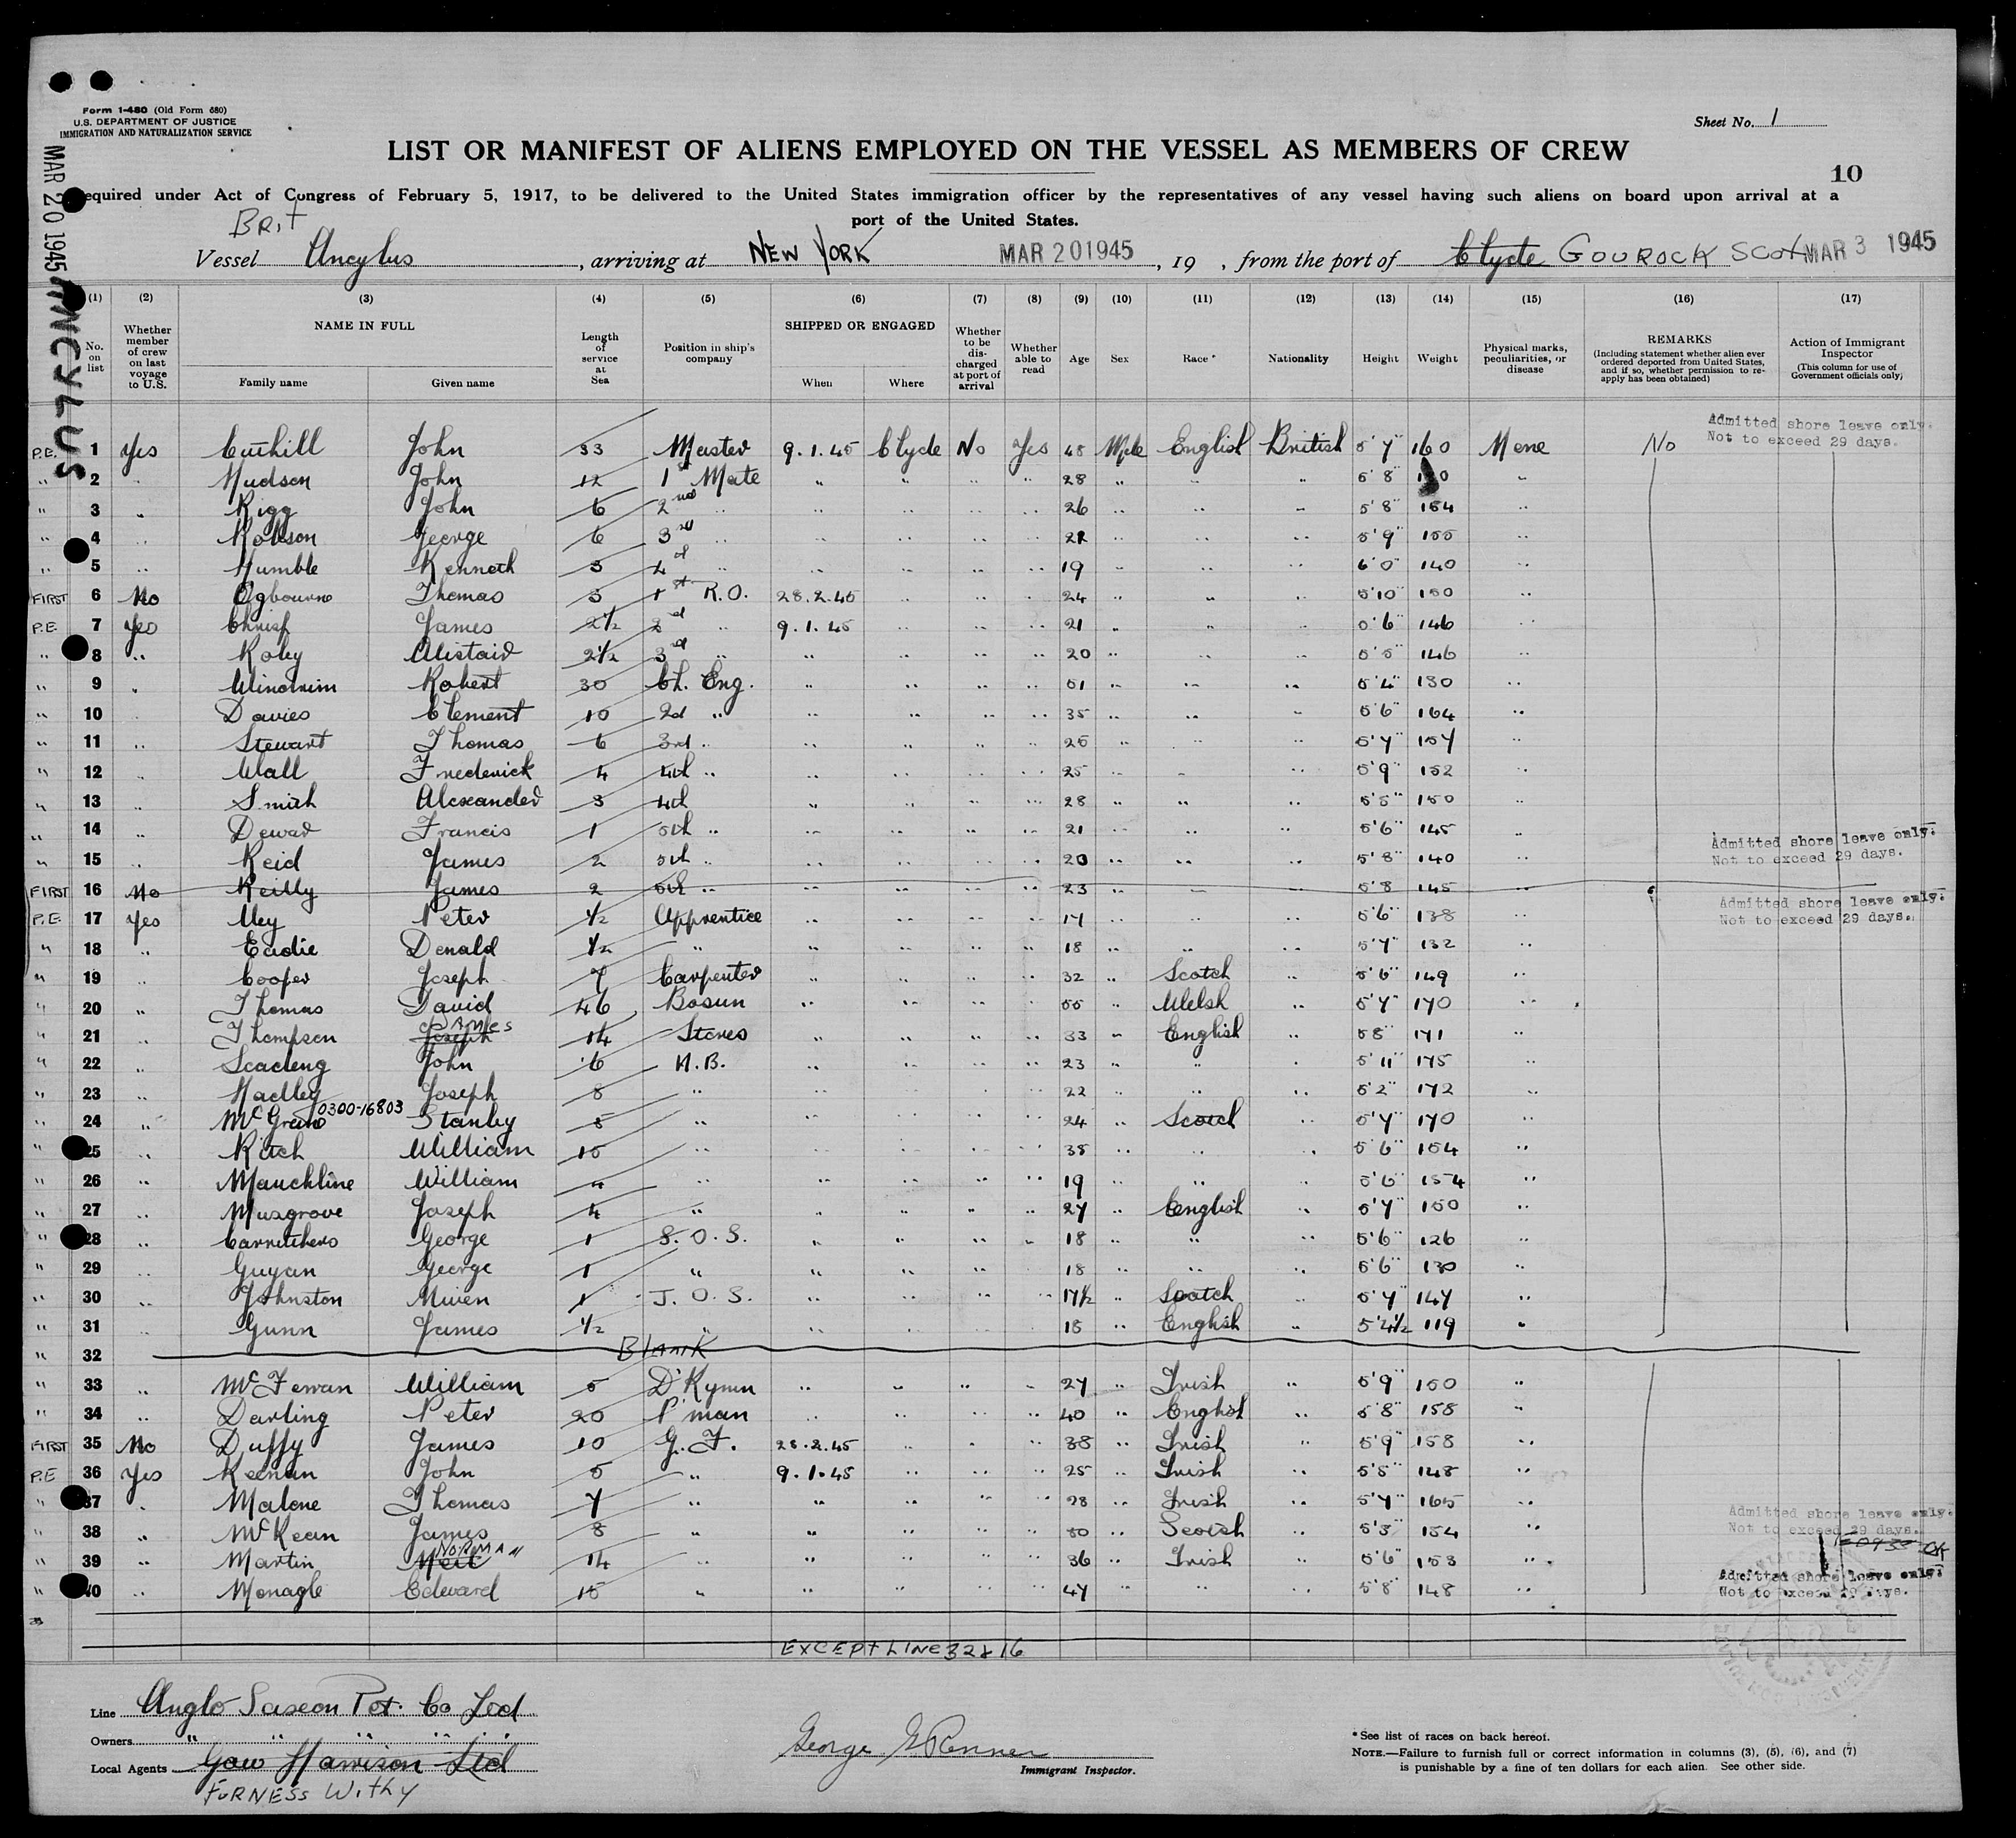 Form I-480 (Old Form 680)
U.S. DEPARTMENT OF JUSTICE
IMMIGRATION AND NATURALIZATION SERVICE
Sheet No. 1
LIST OR MANIFEST OF ALIENS EMPLOYED ON THE VESSEL AS MEMBERS OF CREW
10
equired under Act of Congress of February 5, 1917, to be delivered to the United States immigration officer by the representatives of any vessel having such aliens on board upon arrival at a
port of the United States.
MAR 20 1945 ANCYLUS
BRIT
Vessel Ancylus, arriving at NEW YORK MAR 20 1945, 19 , from the port of Clyde GOUROCK SCOT MAR 3 1945
(1) (2) (3) (4) (5) (6) (7) (8) (9) (10) (11) (12) (13) (14) (15) (16) (17)
No. on list
Whether member of crew on last voyage to U.S.
NAME IN FULL
Family name Given name
Length of service at Sea
Position in ship's company
SHIPPED OR ENGAGED
When Where
Whether to be discharged at port of arrival
Whether able to read
Age Sex Race* Nationality Height Weight
Physical marks, peculiarities, or disease
REMARKS
(Including statement whether alien ever ordered deported from United States, and if so, whether permission to reapply has been obtained)
Action of Immigrant Inspector
(This column for use of Government officials only)
Admitted shore leave only.
Not to exceed 29 days.
P.E. 1 Yes John 33 Master 9.1.45 Clyde No Yes 48 Male English British 5'7" 160 None No
" 2 " Hudson John 12 1st Mate " " " " 28 " " " 5'8" "
" 3 " Rigg John 6 2nd " " " " " 26 " " " 5'8" 154 "
" 4 " Robson George 6 3rd " " " " " " " " 5'9" 155 "
" 5 " Humble Kenneth 3 4th " " " " " 19 " " " 6'0" 140 "
FIRST 6 No Ogbourne Thomas 3 1st R.O. 28.2.45 " " " 24 " " " 5'10" 150 "
P.E. 7 Yes James 2½ 2nd " 9.1.45 " " " 21 " " " 146 "
" 8 " Roby Alistair 2½ 3rd " " " " " 20 " " " 5'5" 146 "
" 9 " Windrim Robert 30 Ch. Eng. " " " " 51 " " " 5'4" 130 "
" 10 " Davies Clement 10 2d " " " " " 35 " " " 5'6" 164 "
" 11 " Stewart Thomas 6 3rd " " " " " 25 " " " 5'7" 157 "
" 12 " Wall Frederick 4 4th " " " " " 25 " " " 5'9" 152 "
" 13 " Smith Alexander 3 4th " " " " 28 " " " 5'5" 150 "
" 14 " Dewar Francis 1 5th " " " " " 21 " " " 5'6" 145 "
" 15 " Reid James 2 5th " " " " " 20 " " " 5'8" 140 "
Admitted shore leave only.
Not to exceed 29 days.
FIRST 16 No Reilly James 2 5th " " " " " 23 " " " 5'8 145 "
P.E. 17 Yes Peter ½ Apprentice " " " " 17 " " " 5'6" 138 "
Admitted shore leave only.
Not to exceed 29 days.
" 18 " Eadie Donald ½ " " " " " 18 " " " 5'7" 132 "
" 19 " Cooper Joseph 7 Carpenter " " " " 32 " Scotch " 5'6" 149 "
" 20 " Thomas David 46 Bosun " " " " 55 " Welsh " 5'7" 170 "
" 21 " Thompson Joseph JAMES 14 Stores " " " " 33 " English " 5'8" 171 "
" 22 " John 6 A.B. " " " " 23 " " " 5'11" 175 "
" 23 " Hadley Joseph 8 " " " " " 22 " " " 5'2" 172 "
0300-16803
" 24 " Stanley 5 " " " " " 24 " Scotch " 5'7" 170 "
" 25 " Ritch William 15 " " " " " 35 " " " 5'6" 154 "
" 26 " Mauchline William 4 " " " " " 19 " " " 5'6" 154 "
" 27 " Musgrove Joseph 4 " " " " " 27 " English " 5'7" 150 "
" 28 " Carruthers George 1 S.O.S. " " " " 18 " " " 5'6" 126 "
" 29 " Guyan George 1 " " " " " 18 " " " 5'6" 130 "
" 30 " Johnston 1 J.O.S. " " " " 17½ " Scotch " 5'7" 147 "
" 31 " Gunn James ½ " " " " " 18 " English " 5'4½ 119 "
" 32 Blank
" 33 " McFewan William 5 D'Kymn " " " " 27 " Irish " 5'9" 150 "
" 34 " Darling Peter 20 P'man " " " " 40 " English " 5'8" 158 "
FIRST 35 No Duffy James 10 G.F. 28.2.45 " " " 38 " Irish " 5'9" 158 "
P.E 36 Yes Keenan John 5 " 9.1.45 " " " 25 " Irish " 5'5" 148 "
" 37 " Malone Thomas 7 " " " " " 28 " Irish " 5'7" 165 "
" 38 " McKean James 8 " " " " " 30 " Scotch " 5'3" 154 "
Admitted shore leave only.
Not to exceed 29 days.
" 39 " Martin Neil NORMAN 14 " " " " " 36 " Irish " 5'6" 153 "
" 40 " Monagle Edward 15 " " " " " 47 " " " 5'8" 148 "
Admitted shore leave only.
Not to exceed 29 days.
EXCEPT LINE 32 & 16
Line Anglo Saxon Pet. Co Ltd
Owners " " " " "
Local Agents Gow Harrison Ltd
FURNESS WITHY
George G Renner
Immigrant Inspector.
*See list of races on back hereof.
NOTE.—Failure to furnish full or correct information in columns (3), (5), (6), and (7)
is punishable by a fine of ten dollars for each alien. See other side.